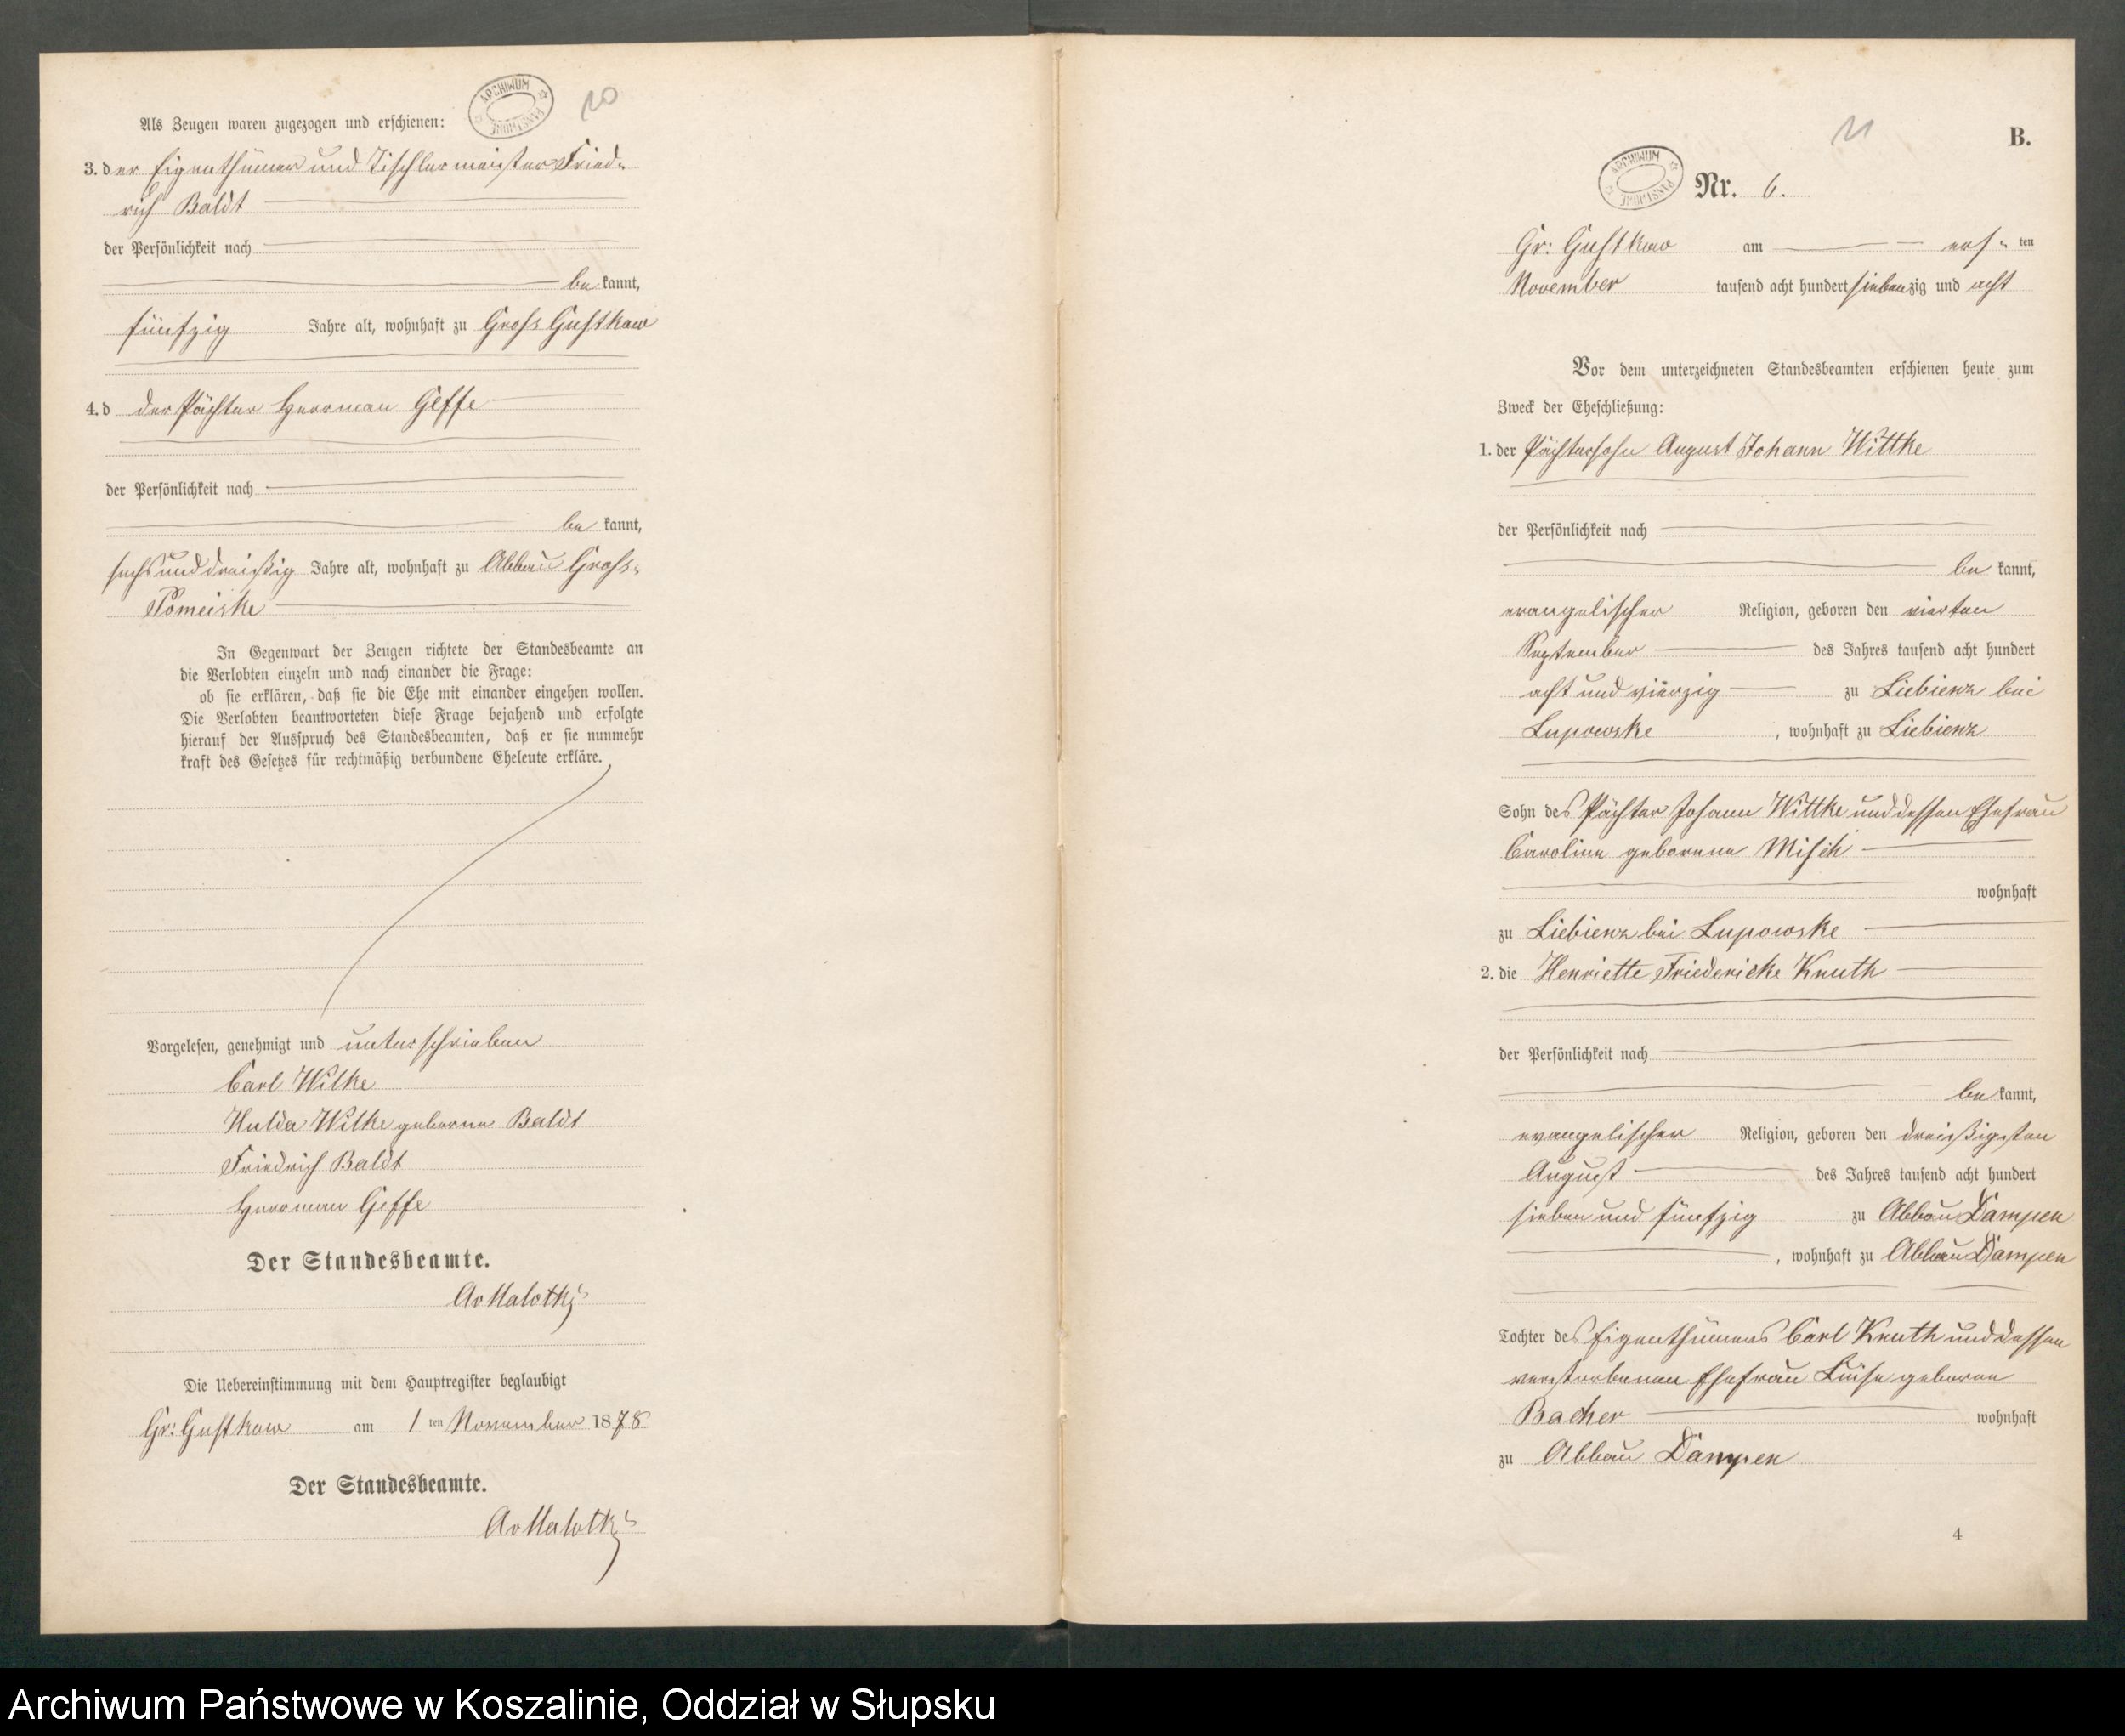 10
ARCHIWUM PAŃSTWOWE
Als Zeugen waren zugezogen und erschienen:
3. der Eigenthümer und Tischlermeister Fried-
rich Baldt
der Persönlichkeit nach
bekannt,
fünfzig Jahre alt, wohnhaft zu Gross Gustkow
4. d der Pächter Herrman Geffe
der Persönlichkeit nach
be kannt,
sechs und dreißig Jahre alt, wohnhaft zu Abbau Gross-
Pomeiske
In Gegenwart der Zeugen richtete der Standesbeamte an
die Verlobten einzeln und nach einander die Frage:
ob sie erklären, daß sie die Ehe mit einander eingehen wollen.
Die Verlobten beantworteten diese Frage bejahend und erfolgte
hierauf der Ausspruch des Standesbeamten, daß er sie nunmehr
kraft des Gesetzes für rechtmäßig verbundene Eheleute erkläre.
Vorgelesen, genehmigt und unterschrieben
Carl Wilke
Hulda Wilke geborne Baldt
Friedrich Baldt
Herrman Geffe
Der Standesbeamte.
AvMalotki
Die Uebereinstimmung mit dem Hauptregister beglaubigt
Gr: Gustkow am 1 ten November 1878
Der Standesbeamte.
AvMalotki
11
B.
ARCHIWUM PAŃSTWOWE
Nr. 6.
Gr: Gustkow am ers- ten
November tausend acht hundert siebenzig und acht
Vor dem unterzeichneten Standesbeamten erschienen heute zum
Zweck der Eheschließung:
1. der Pächtersohn August Johann Wittke
der Persönlichkeit nach
be kannt,
evangelischer Religion, geboren den vierten
September des Jahres tausend acht hundert
acht und vierzig zu Liebienz bei
Lupowske, wohnhaft zu Liebienz
Sohn des Pächter Johann Wittke und dessen Ehefrau
Caroline geborene Misch
wohnhaft
zu Liebienz bei Lupowske
2. die Henriette Friedericke Knuth
der Persönlichkeit nach
be kannt,
evangelischer Religion, geboren den dreißigsten
August des Jahres tausend acht hundert
sieben und fünfzig zu Abbau Dampen
, wohnhaft zu Abbau Dampen
Tochter des Eigenthümers Carl Knuth und dessen
verstorbenen Ehefrau Luise geborne
Bacher wohnhaft
zu Abbau Dampen
4
Archiwum Państwowe w Koszalinie, Oddział w Słupsku